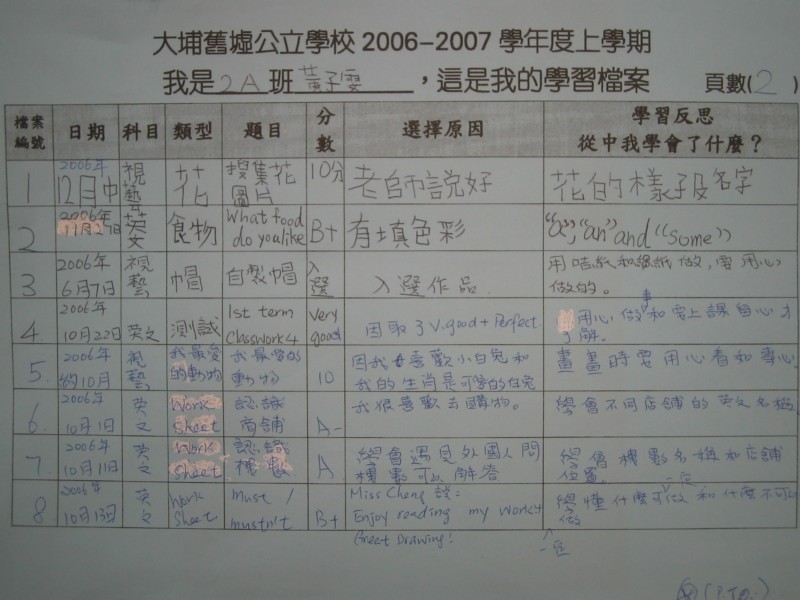 大埔舊墟公立學校 2006-2007 學年度上學期
我是2A班黃子雯，這是我的學習檔案 頁數(2)
檔案編號 日期 科目 類型 題目 分數 選擇原因 學習反思 從中我學會了什麼？
1 2006年12月中 視藝 花 搜集花圖片 10分 老師說好 花的樣子及名字
2 2006年11月29日 英文 食物 What food do you like B+ 有填色彩 "a","an" and "some"
3 2006年6月7日 視藝 帽 自製帽 入選 入選作品 用咭紙和縐紙做，要用心做的。
4. 2006年10月22日 英文 測試 1st term Classwork 4 very good 因取3 V.good + Perfect 用心做事和要上課留心才了解。
5. 2006年約10月 視藝 我最愛的動物 我最愛的動物 10 因我喜歡小白兔和我的生肖是可愛的白兔 畫畫時要用心看和專心
6. 2006年10月1日 英文 Work Sheet 認識商舖 A- 我很喜歡去購物。 學會不同店舖的英文名稱
7. 2006年10月11日 英文 Work sheet 認識樓數 A 學會遇見外國人問樓數可以解答 學懂樓數名稱和店舖位置。
8 2006年10月13日 英文 Work Sheet must / mustn't B+ Miss Cheng 說: Enjoy reading my work & Great Drawing! 學懂什麼可做和什麼不可以做
一定
一定
(P.T.O.)